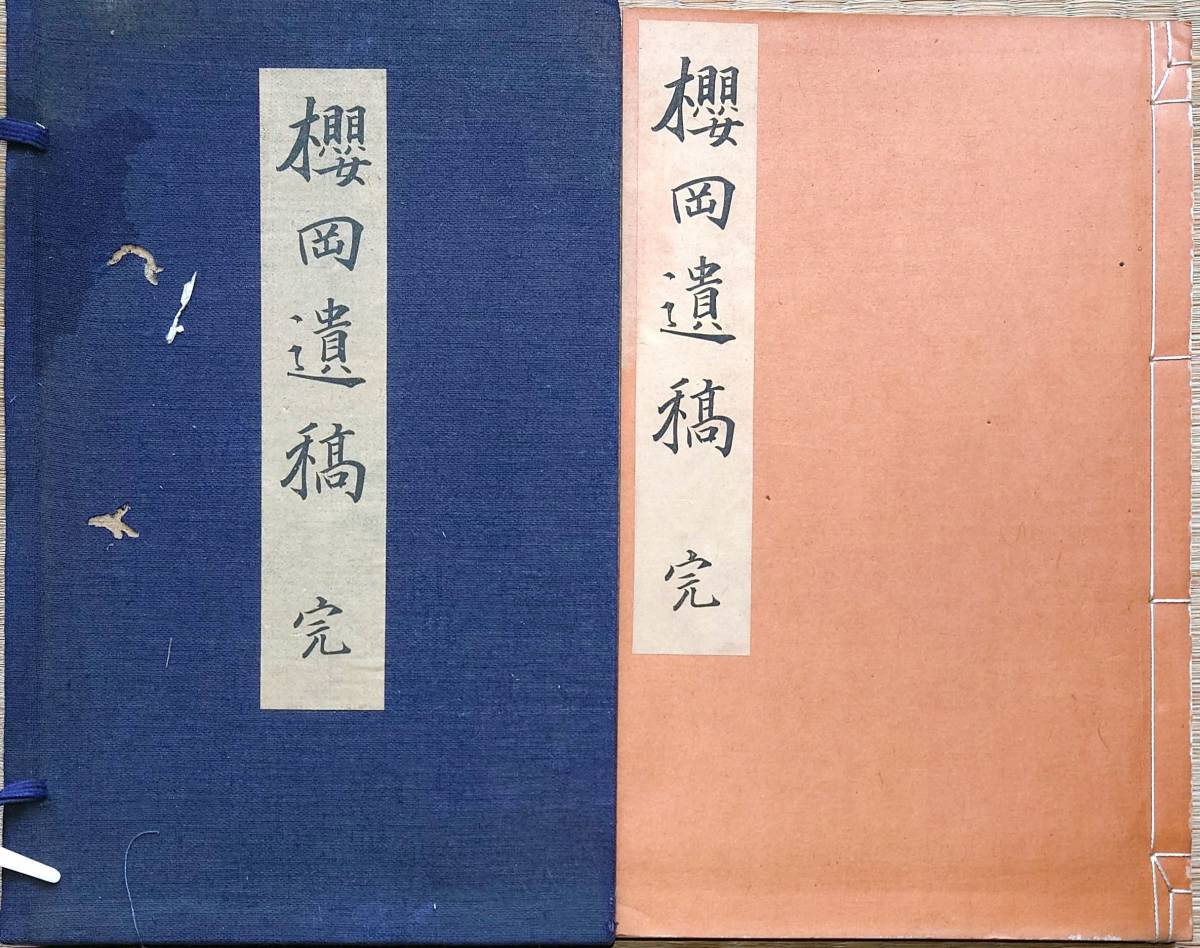 櫻岡遺稿 完
櫻岡遺稿 完